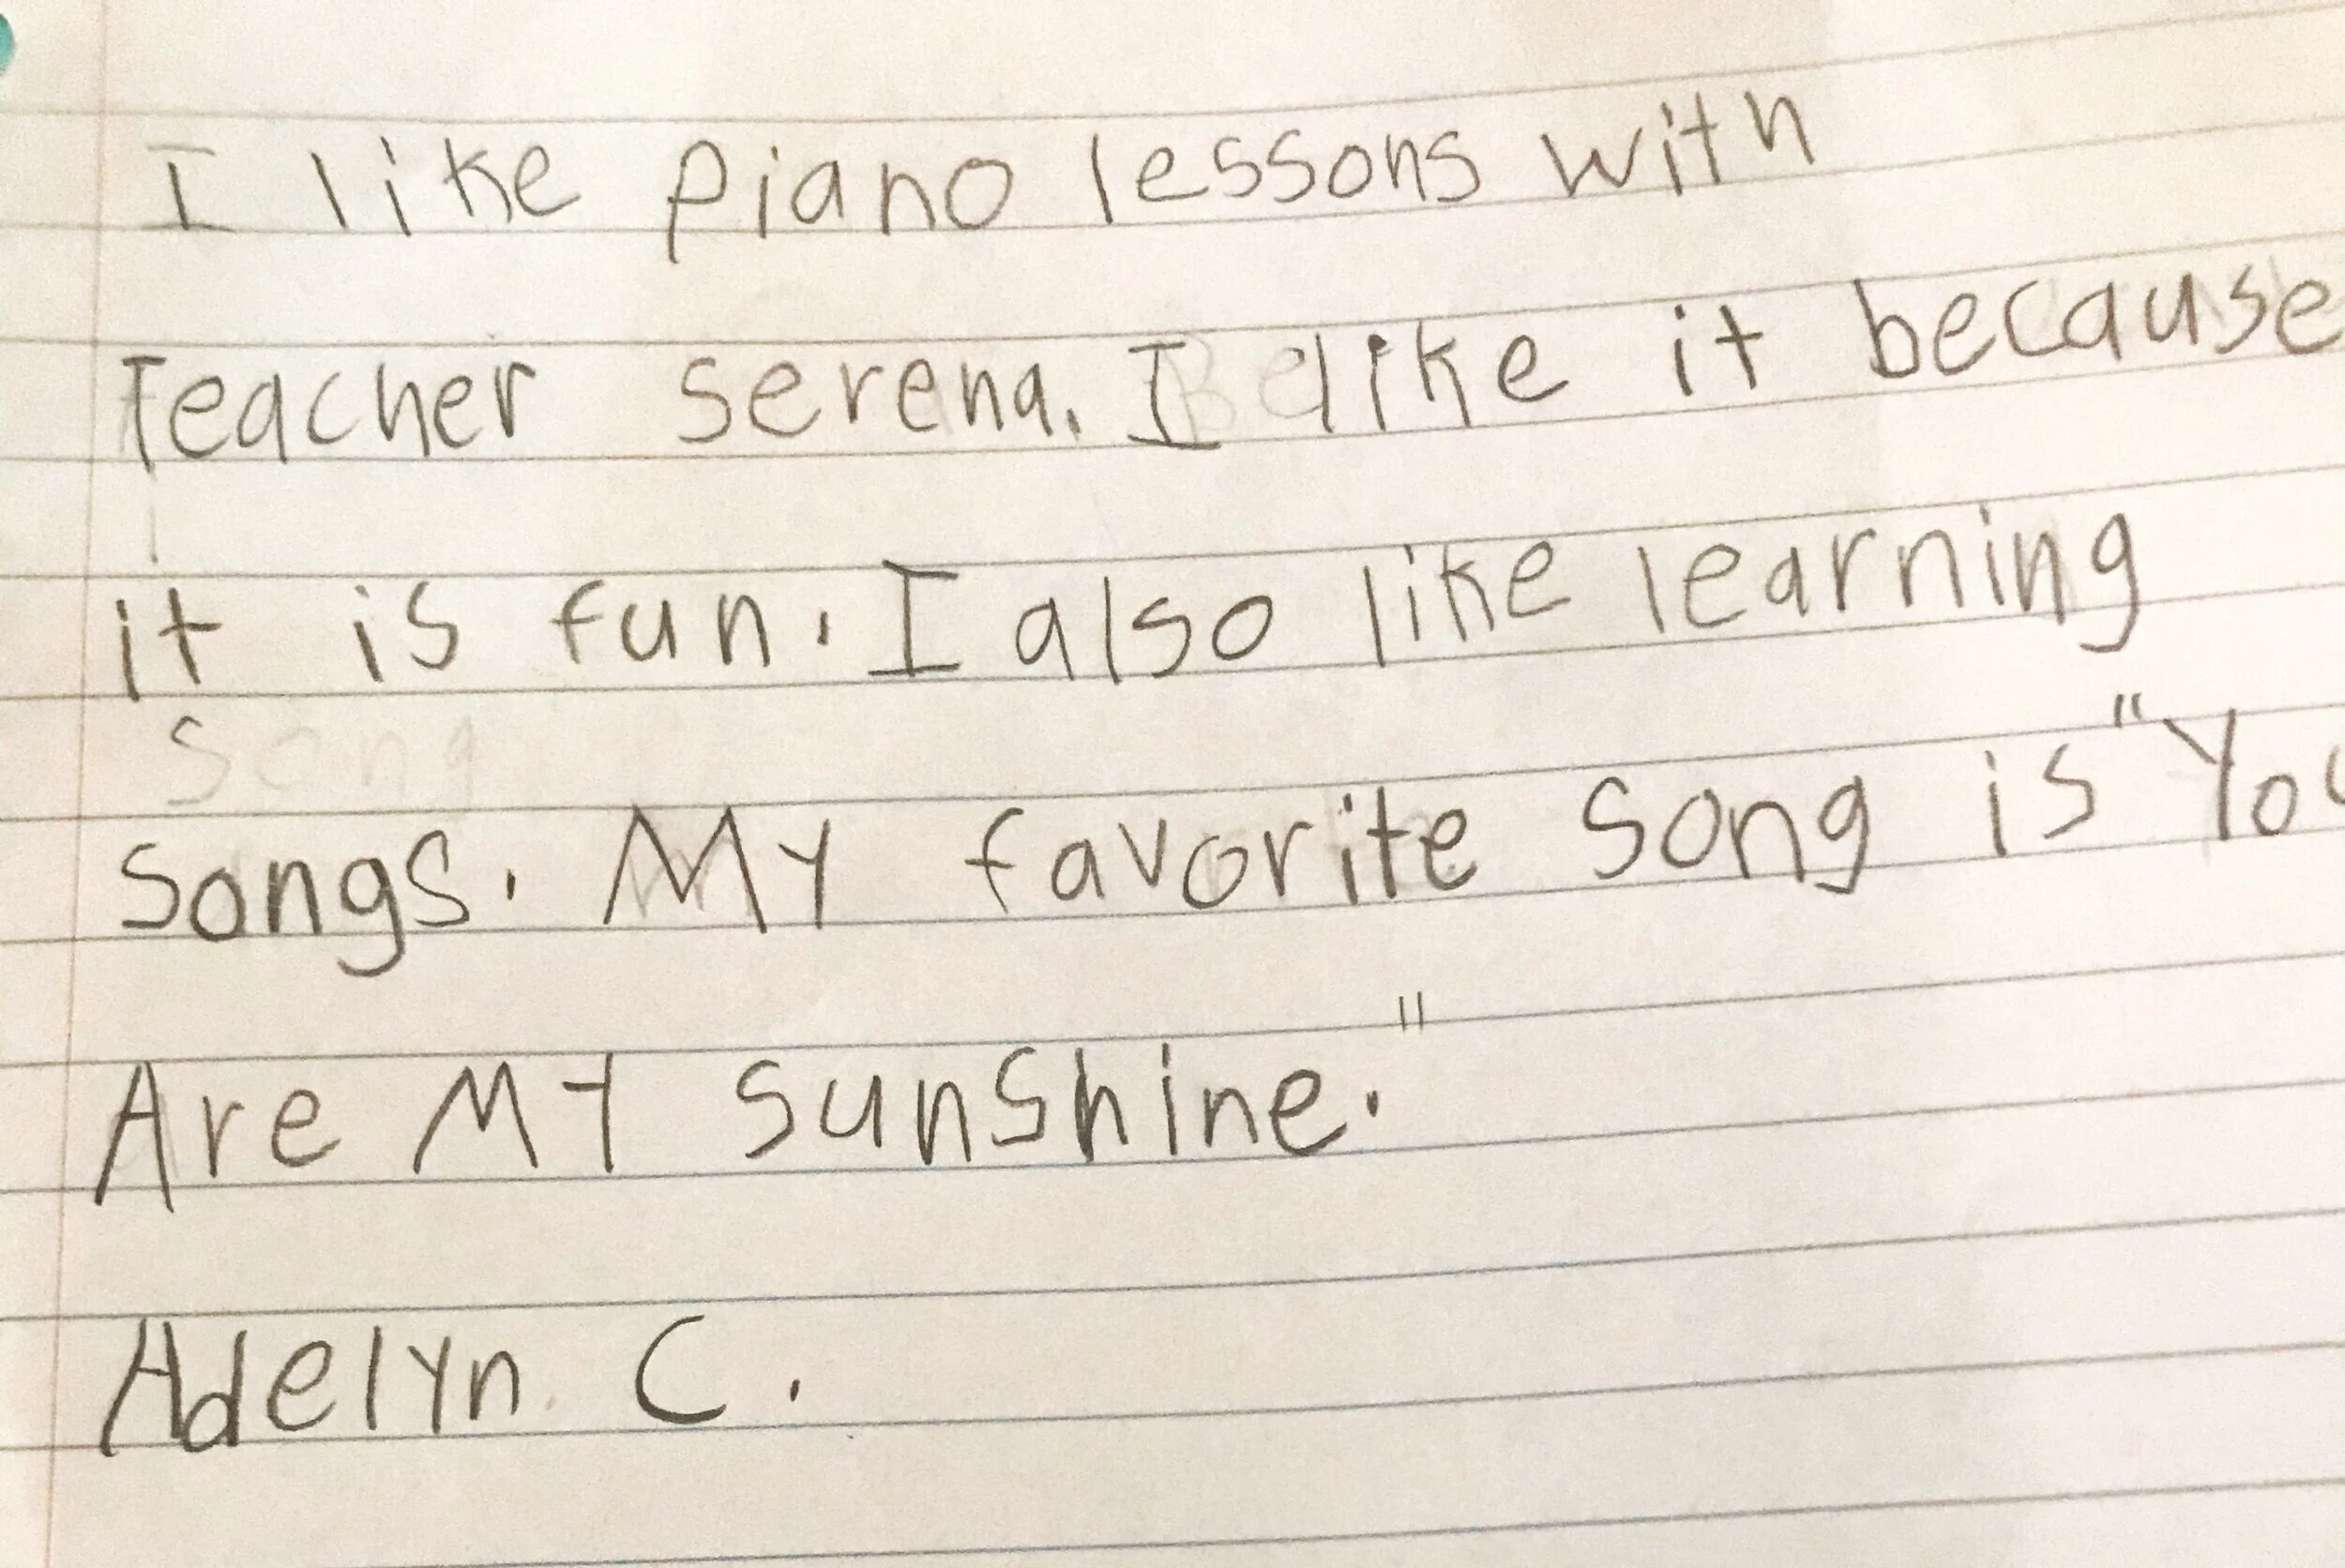 I like piano lessons with
Teacher serena. I like it because
it is fun. I also like learning
songs. My favorite song is "You
Are My sunshine."
Adelyn C.